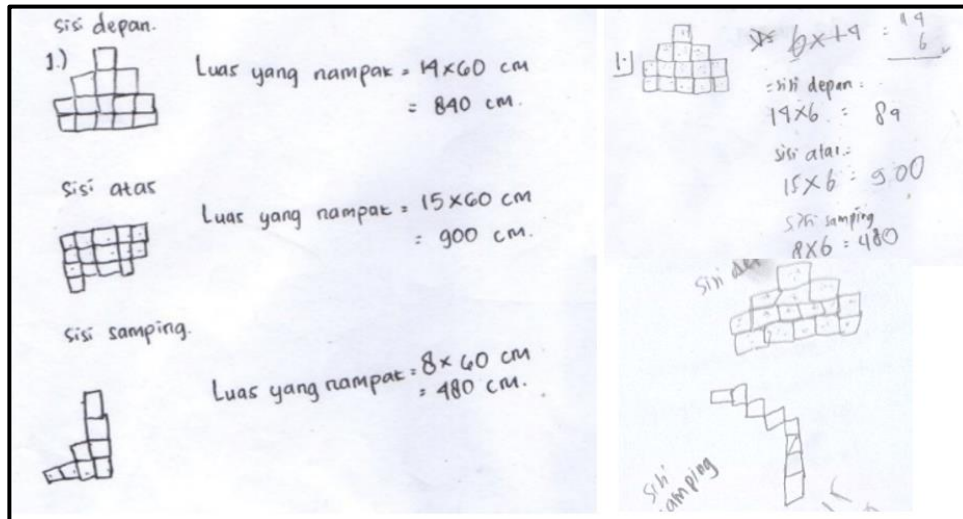 sisi depan.
1.)
Luas yang nampak = 14×60 cm
= 840 cm.
Sisi atas
Luas yang nampak = 15×60 cm
= 900 cm.
Sisi samping.
Luas yang nampak = 8×60 cm
= 480 cm.
1.
6×14 = 14
6
sisi depan =
14×6 = 84
sisi atas =
15×6 = 900
sisi samping
8×6 = 480
sisi
sisi
samping